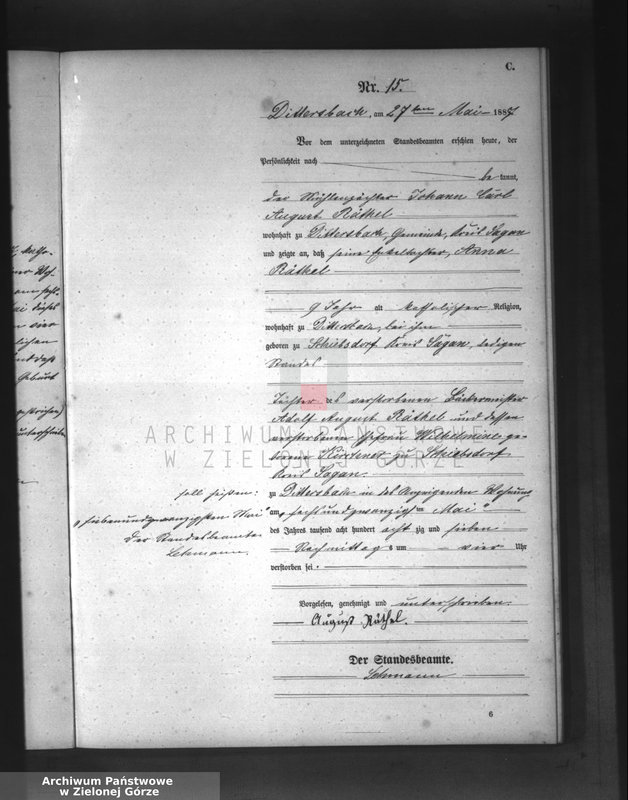 C.
Nr. 15.
Dittersbach, am 27ten Mai 1887.
Vor dem unterzeichneten Standesbeamten erschien heute, der
Persönlichkeit nach
be kannt,
der Mühlenpächter Johann Carl
August Räthel
wohnhaft zu Dittersbach, Gemeinde, Kreis Sagan
und zeigte an, daß seine Enkeltochter, Anna
Räthel
9 Jahr alt katholischer Religion,
wohnhaft zu Dittersbach, bei ihm
geboren zu Schiebsdorf Kreis Sagan, ledigen
Standes
Tochter des verstorbenen Bäckermeister
Adolf August Räthel und dessen
verstorbenen Ehefrau Wilhelmine ge-
borene zu Schiebsdorf
Kreis Sagan
zu Dittersbach in des Anzeigenden Wohnung
am "sechsundzwanzigsten Mai"
des Jahres tausend acht hundert acht zig und sieben
Nachmittags um vier Uhr
verstorben sei.
soll heißen:
"siebenundzwanzigsten Mai"
Der Standesbeamte.
Lehmann.
Vorgelesen, genehmigt und unterschrieben.
August Räthel.
Der Standesbeamte.
Lehmann
6
ARCHIWUM PAŃSTWOWE
W ZIELONEJ GÓRZE
Archiwum Państwowe
w Zielonej Górze